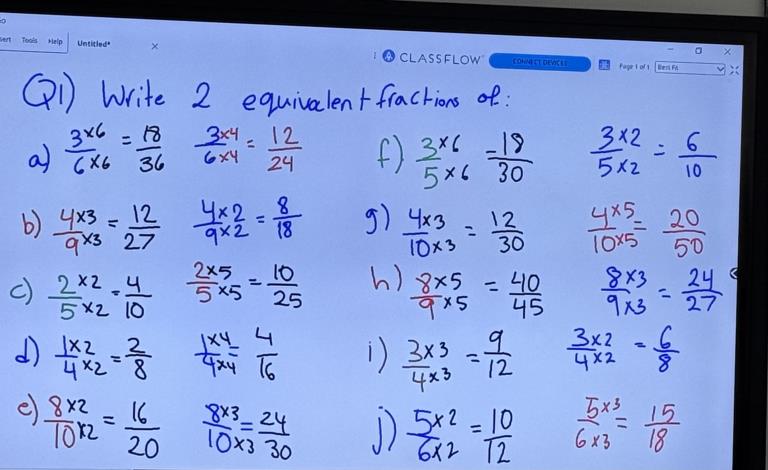 sert Tools Help Untitled* ×
CLASSFLOW CONNECT DEVICES Page 1 of 1 Best Fit
Q1) Write 2 equivalent fractions of:
a) 3×6/6×6 = 18/36 3×4/6×4 = 12/24 f) 3×6/5×6 = 18/30 3×2/5×2 = 6/10
b) 4×3/9×3 = 12/27 4×2/9×2 = 8/18 g) 4×3/10×3 = 12/30 4×5/10×5 = 20/50
c) 2×2/5×2 = 4/10 2×5/5×5 = 10/25 h) 8×5/9×5 = 40/45 8×3/9×3 = 24/27
d) 1×2/4×2 = 2/8 1×4/4×4 = 4/16 i) 3×3/4×3 = 9/12 3×2/4×2 = 6/8
e) 8×2/10×2 = 16/20 8×3/10×3 = 24/30 j) 5×2/6×2 = 10/12 5×3/6×3 = 15/18